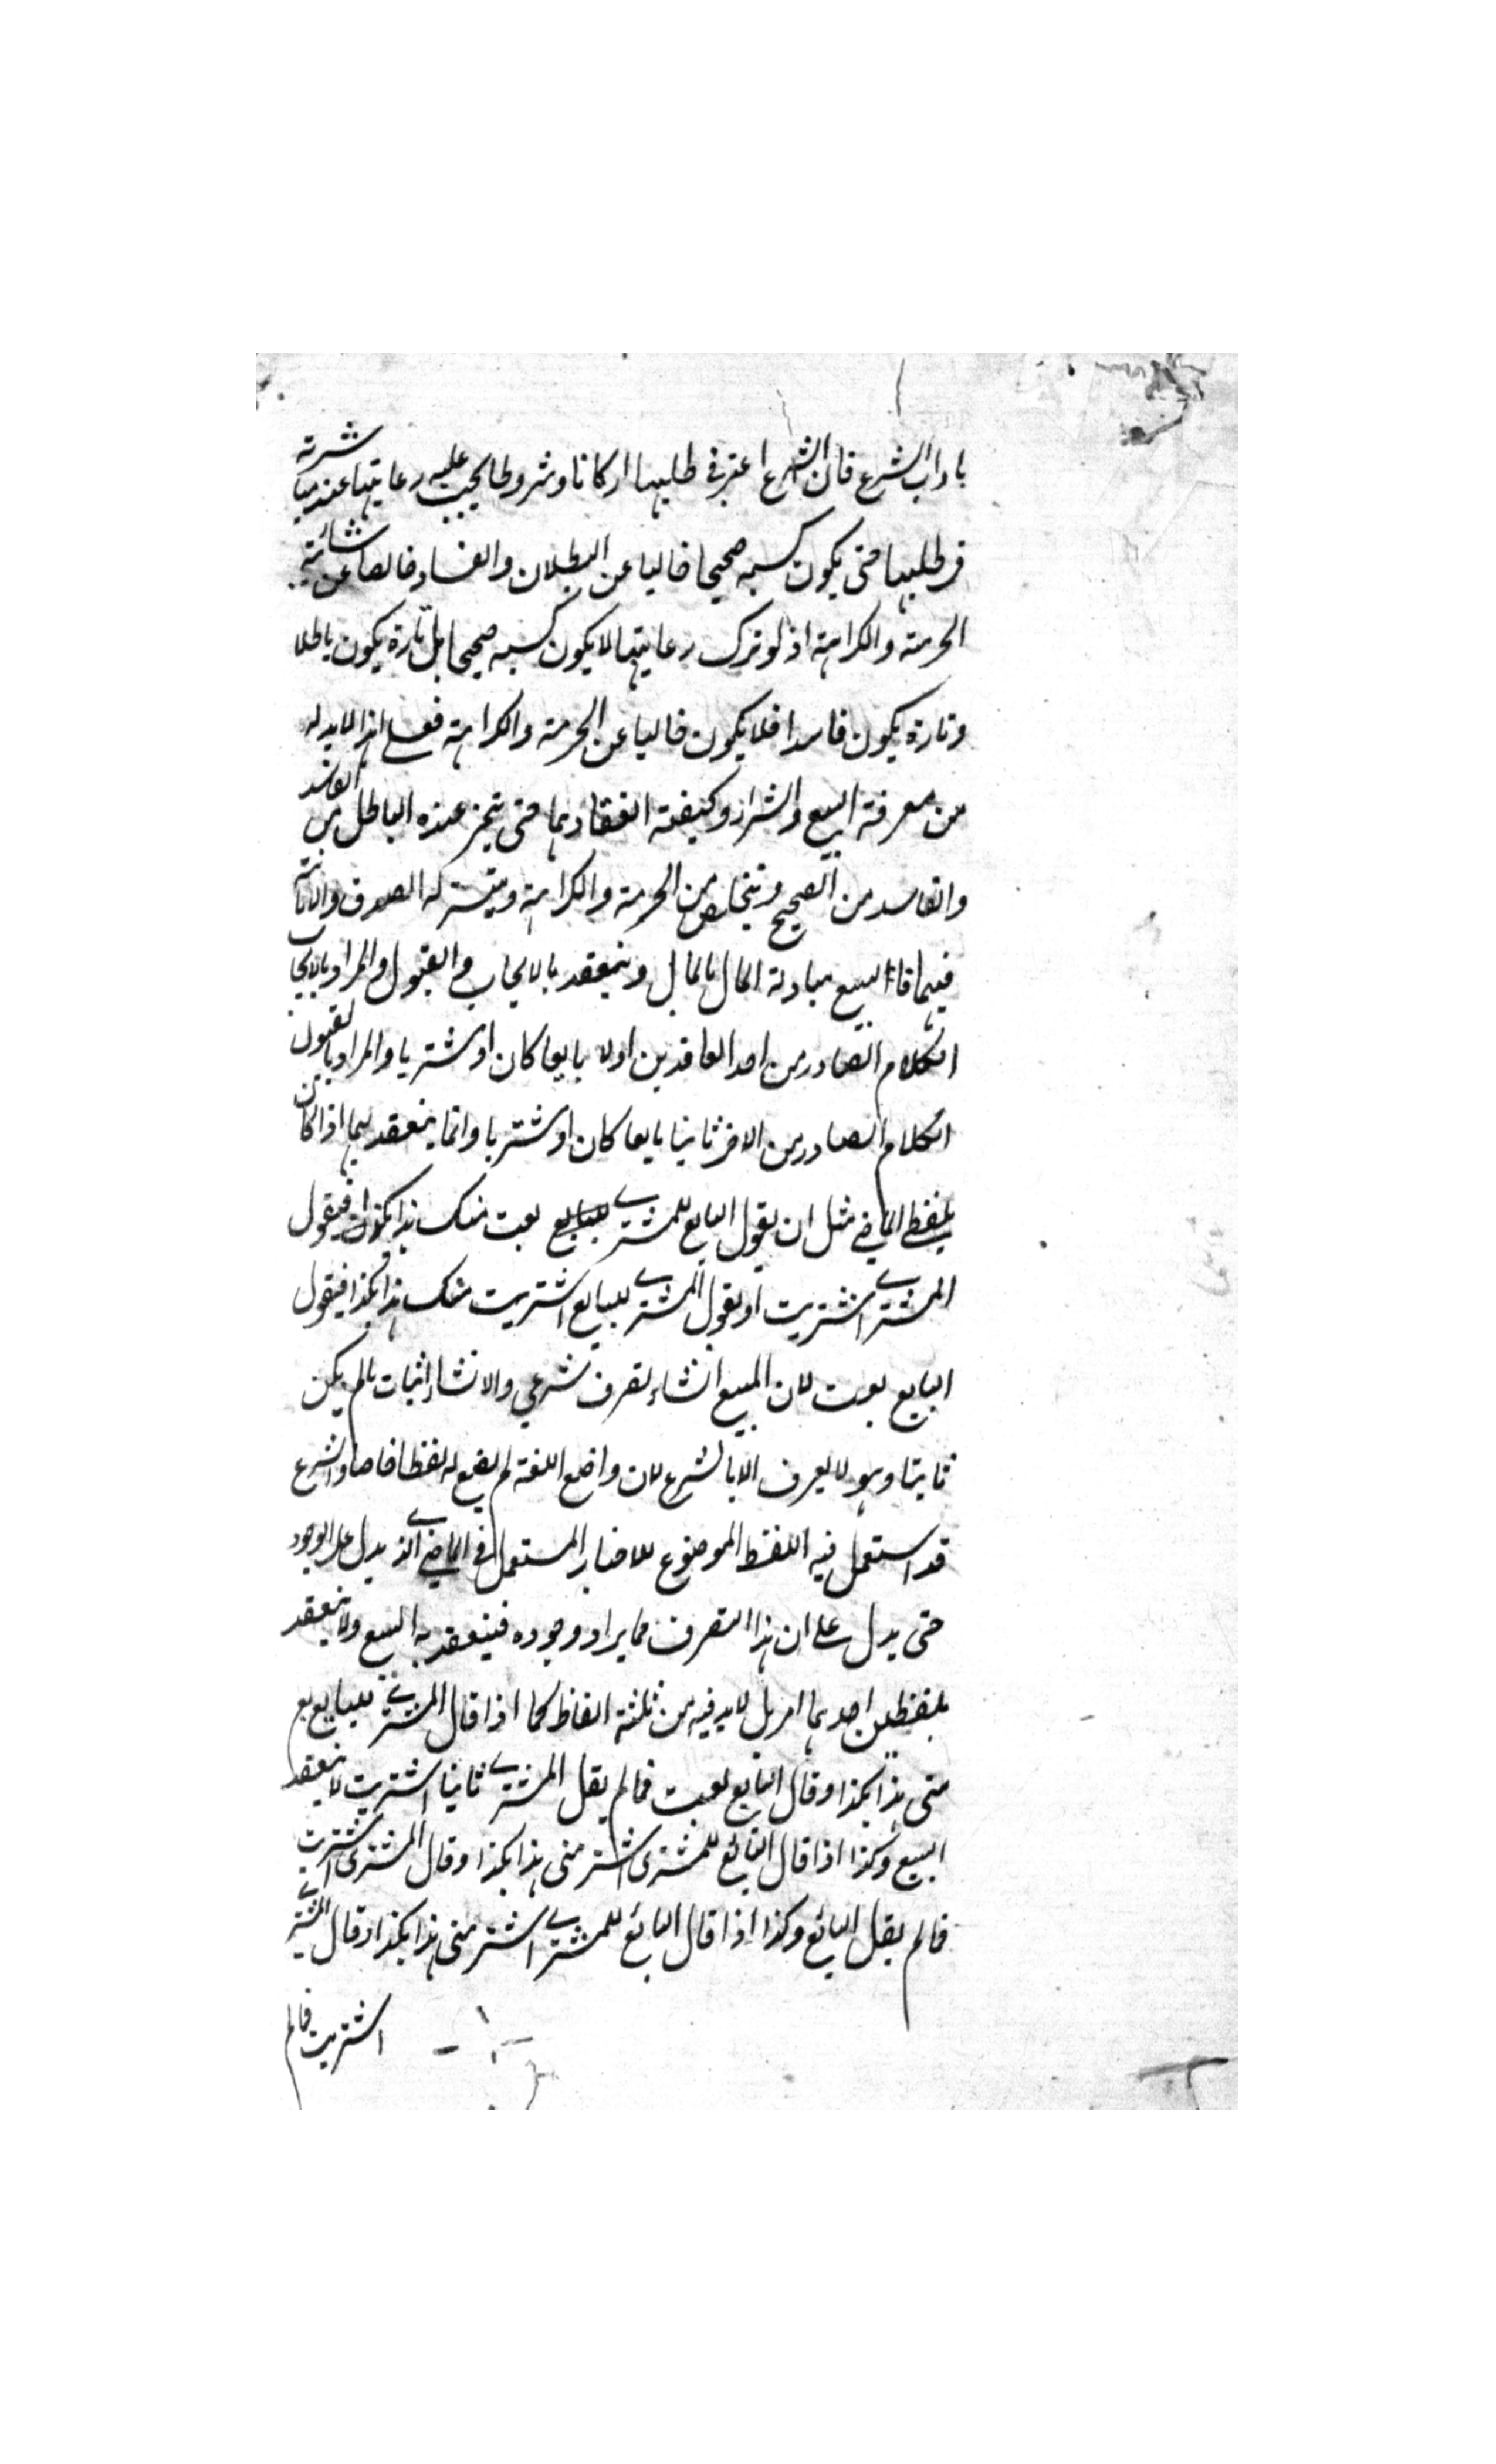 باداب الشرع فان الشرع اعتبر في طلبها اركانا وشروطا يجب عليه رعايتها عند مباشرته
في طلبها حتى يكون كسبه صحيحا خاليا عن البطلان والفساد خالصا عن شائبة
الحرمة والكراهة اذ لو ترك رعايتها لا يكون كسبه صحيحا بل تارة يكون باطلا
وتارة يكون فاسدا فلا يكون خاليا عن الحرمة والكراهة فعلى هذا لا بد له
من معرفة البيع والشراء وكيفية انعقادهما حتى يتميز عنده الباطل من الفاسد
والفاسد من الصحيح ويتخلص من الحرمة والكراهة ويتيسر له الصدق والامانة
فيهما فالبيع مبادلة المال بالمال وينعقد بالايجاب والقبول والمراد بالايجاب
الكلام الصادر من احد العاقدين اولا بايعا كان او مشتريا والمراد بالقبول
الكلام الصادر من الاخر ثانيا بايعا كان او مشتريا وانما ينعقد بهما اذا كان
بلفظي الماضي مثل ان يقول البايع للمشترى للبايع بعت منك هذا بكذا فيقول
المشترى اشتريت او يقول المشترى للبايع اشتريت منك هذا بكذا فيقول
البايع بعت لان المبيع انشاء تصرف شرعي والانشاء اثبات مالم يكن
ثابتا وهو لا يعرف الا بالشرع لان واضع اللغة لم يضع له لفظا خاصا والشرع
قد استعمل فيه اللفظ الموضوع للاخبار المستعمل في الماضي الذى يدل على الوجود
حتى يدل على ان هذا التصرف مما يراد وجوده فينعقد به البيع ولا ينعقد
بلفظين احدهما امر بل لا بد فيه من ثلثة الفاظ كما اذا قال المشترى للبايع بع
منى هذا بكذا وقال البايع بعت فمالم يقل المشترى ثانيا اشتريت لا ينعقد
البيع وكذا اذا قال البائع للمشترى اشتر منى هذا بكذا وقال المشترى اشتريت
فمالم يقل البائع وكذا اذا قال البائع للمشترى اشتر منى هذا بكذا وقال المشترى
اشتريت فمالم